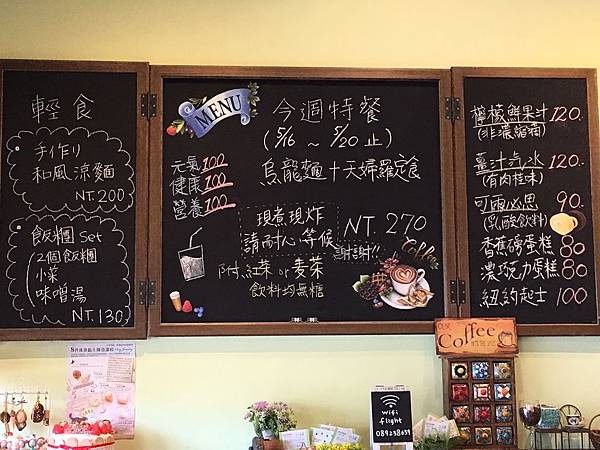 輕食
手作り
和風涼麵
NT.200
飯糰 Set
2個飯糰
小菜
味噌湯
NT.130
MENU
今週特餐
(5/16 ~ 5/20止)
元氣100
健康100
營養100
烏龍麵+天婦羅定食
現煮現炸
請耐心等候
NT.270
謝謝!!
附.紅茶or麥茶
飲料均無糖
Coffee
檸檬鮮果汁 120.
(非濃縮酒)
薑汁汽水 120.
(有肉桂味)
可爾必思 90.
(乳酸飲料)
香蕉磅蛋糕 80
濃巧克力蛋糕 80
紐約起士 100
Coffee
wifi
flight
089238639